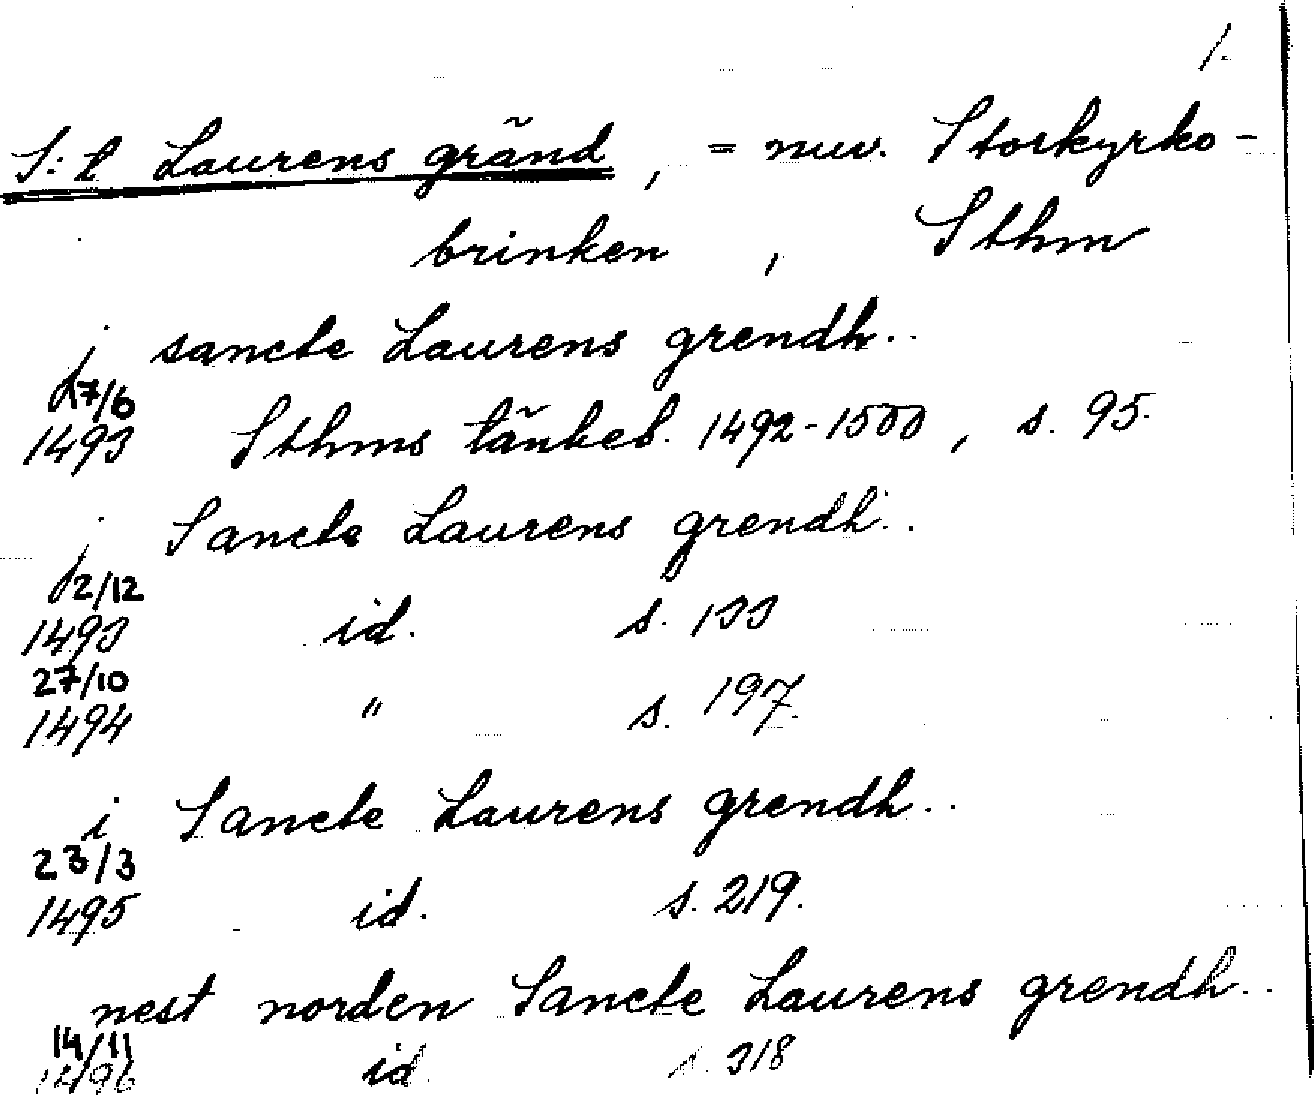 1.
S:t Laurens gränd, = nuv. Storkyrko-
brinken, Sthm
j sancte Laurens grendh..
17/6
1493 Sthms tänkeb. 1492-1500, s. 95.
j Sancte Laurens grendh..
12/12
1493 id. s. 133
27/10
1494 " s. 197.
i Sancte Laurens grendh..
23/3
1495 id. s. 219.
nest norden Sancte Laurens grendh..
14/11
1496 id. s. 318